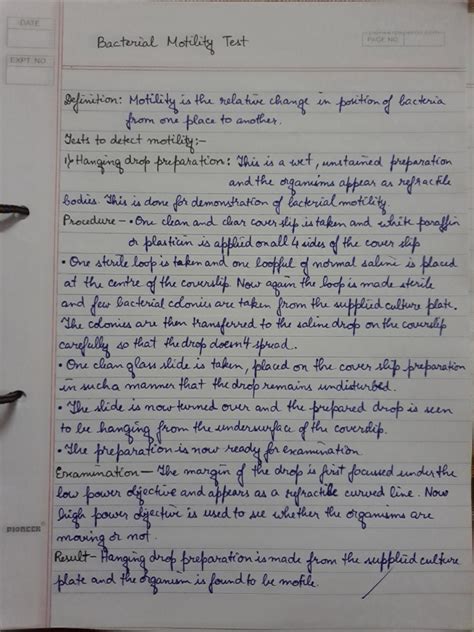 DATE
EXPT NO
PAGE NO
Bacterial Motility Test
Definition: Motility is the relative change in position of bacteria
from one place to another.
Tests to detect motility:-
1) Hanging drop preparation: This is a wet, unstained preparation
and the organisms appear as refractile
bodies. This is done for demonstration of bacterial motility
Procedure - • One clean and clear cover slip is taken and white paraffin
or plasticin is applied on all 4 sides of the cover slip
• One sterile loop is taken and one loopful of normal saline is placed
at the centre of the coverslip. Now again the loop is made sterile
and few bacterial colonies are taken from the supplied culture plate.
The colonies are then transferred to the saline drop on the coverslip
carefully so that the drop doesn't spread.
• One clean glass slide is taken, placed on the cover slip preparation
in such a manner that the drop remains undisturbed.
• The slide is now turned over and the prepared drop is seen
to be hanging from the undersurface of the coverslip.
• The preparation is now ready for examination.
Examination — The margin of the drop is first focussed under the
low power objective and appears as a refractile curved line. Now
high power objective is used to see whether the organisms are
moving or not.
PIONEER
Result - Hanging drop preparation is made from the supplied culture
plate and the organism is found to be motile.